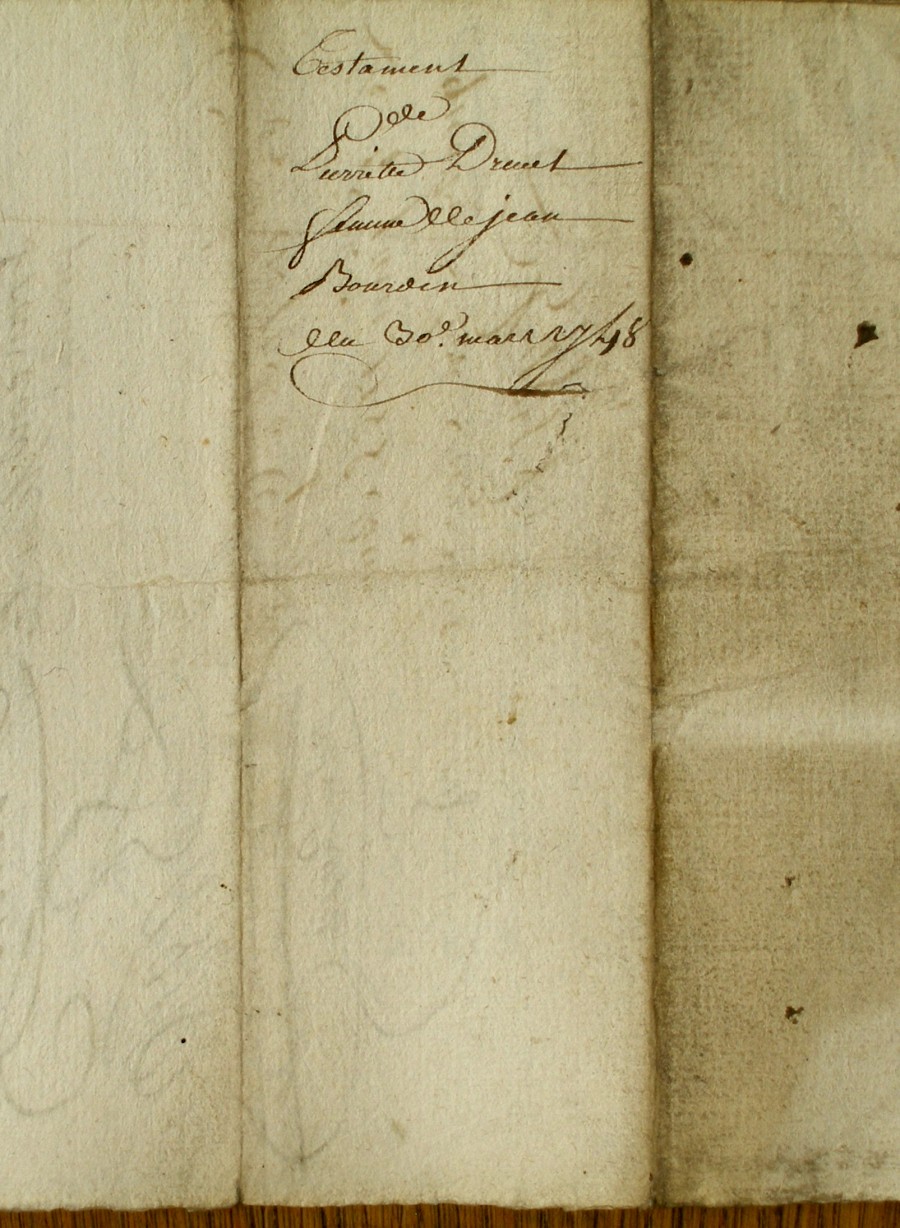 Testament
de
Pierrette Druet
femme de jean
Bourdin
du 30e. mars 1748